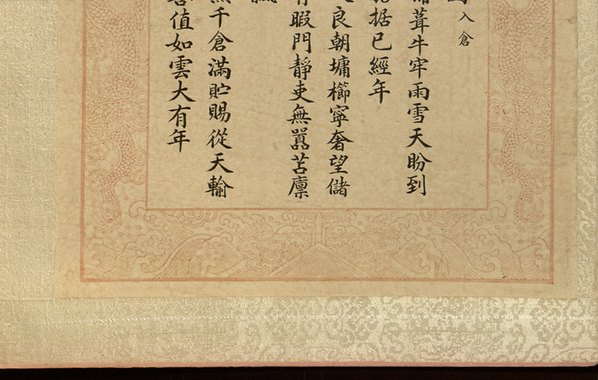 入倉
葺牛牢雨雪天盼到
据已經年
良朝墉櫛寧奢望儲
暇門靜吏無囂苫廩
千倉滿貯賜從天輸
值如雲大有年